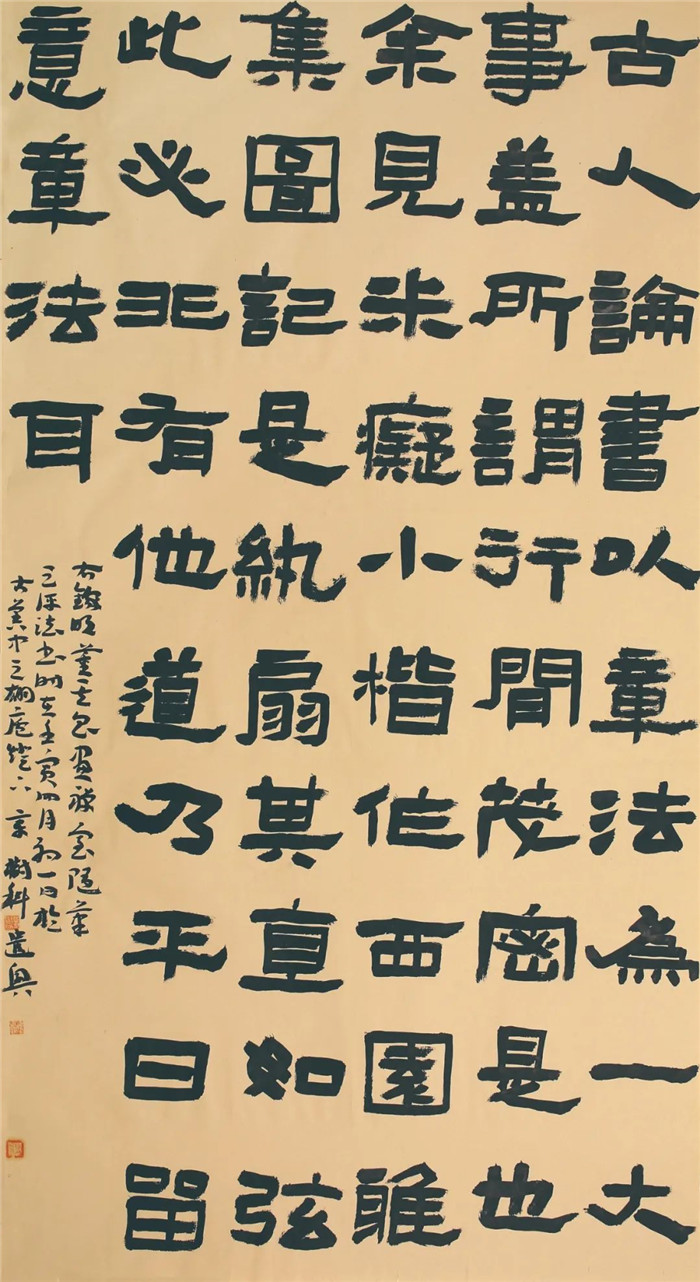 古人論書以章法為一大
事盖所謂行間茂密是也
余見米癡小楷作西園雅
集圖記是紈扇其直如弦
此必非有他道乃平日留
意章法耳
右錄明董其昌畫禪室隨筆
之評法書時在壬寅四月初一日於
樹科遣興